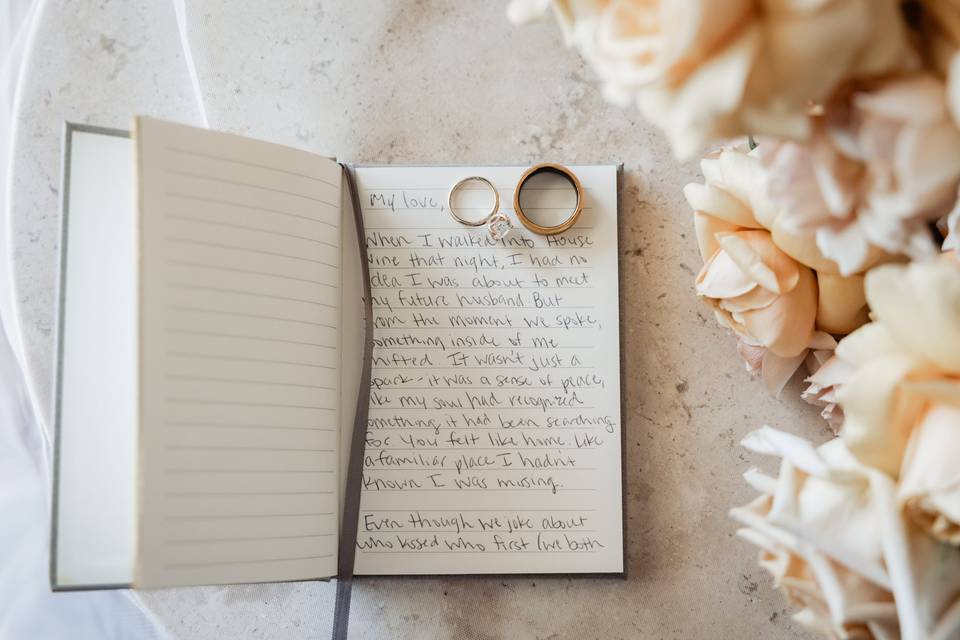 My love,
When I walked into House
Vine that night, I had no
idea I was about to meet
my future husband. But
from the moment we spoke,
something inside of me
shifted. It wasn't just a
spark - it was a sense of peace,
like my soul had recognized
something it had been searching
for. You felt like home. Like
a familiar place I hadn't
known I was missing.
Even though we joke about
who kissed who first (we both